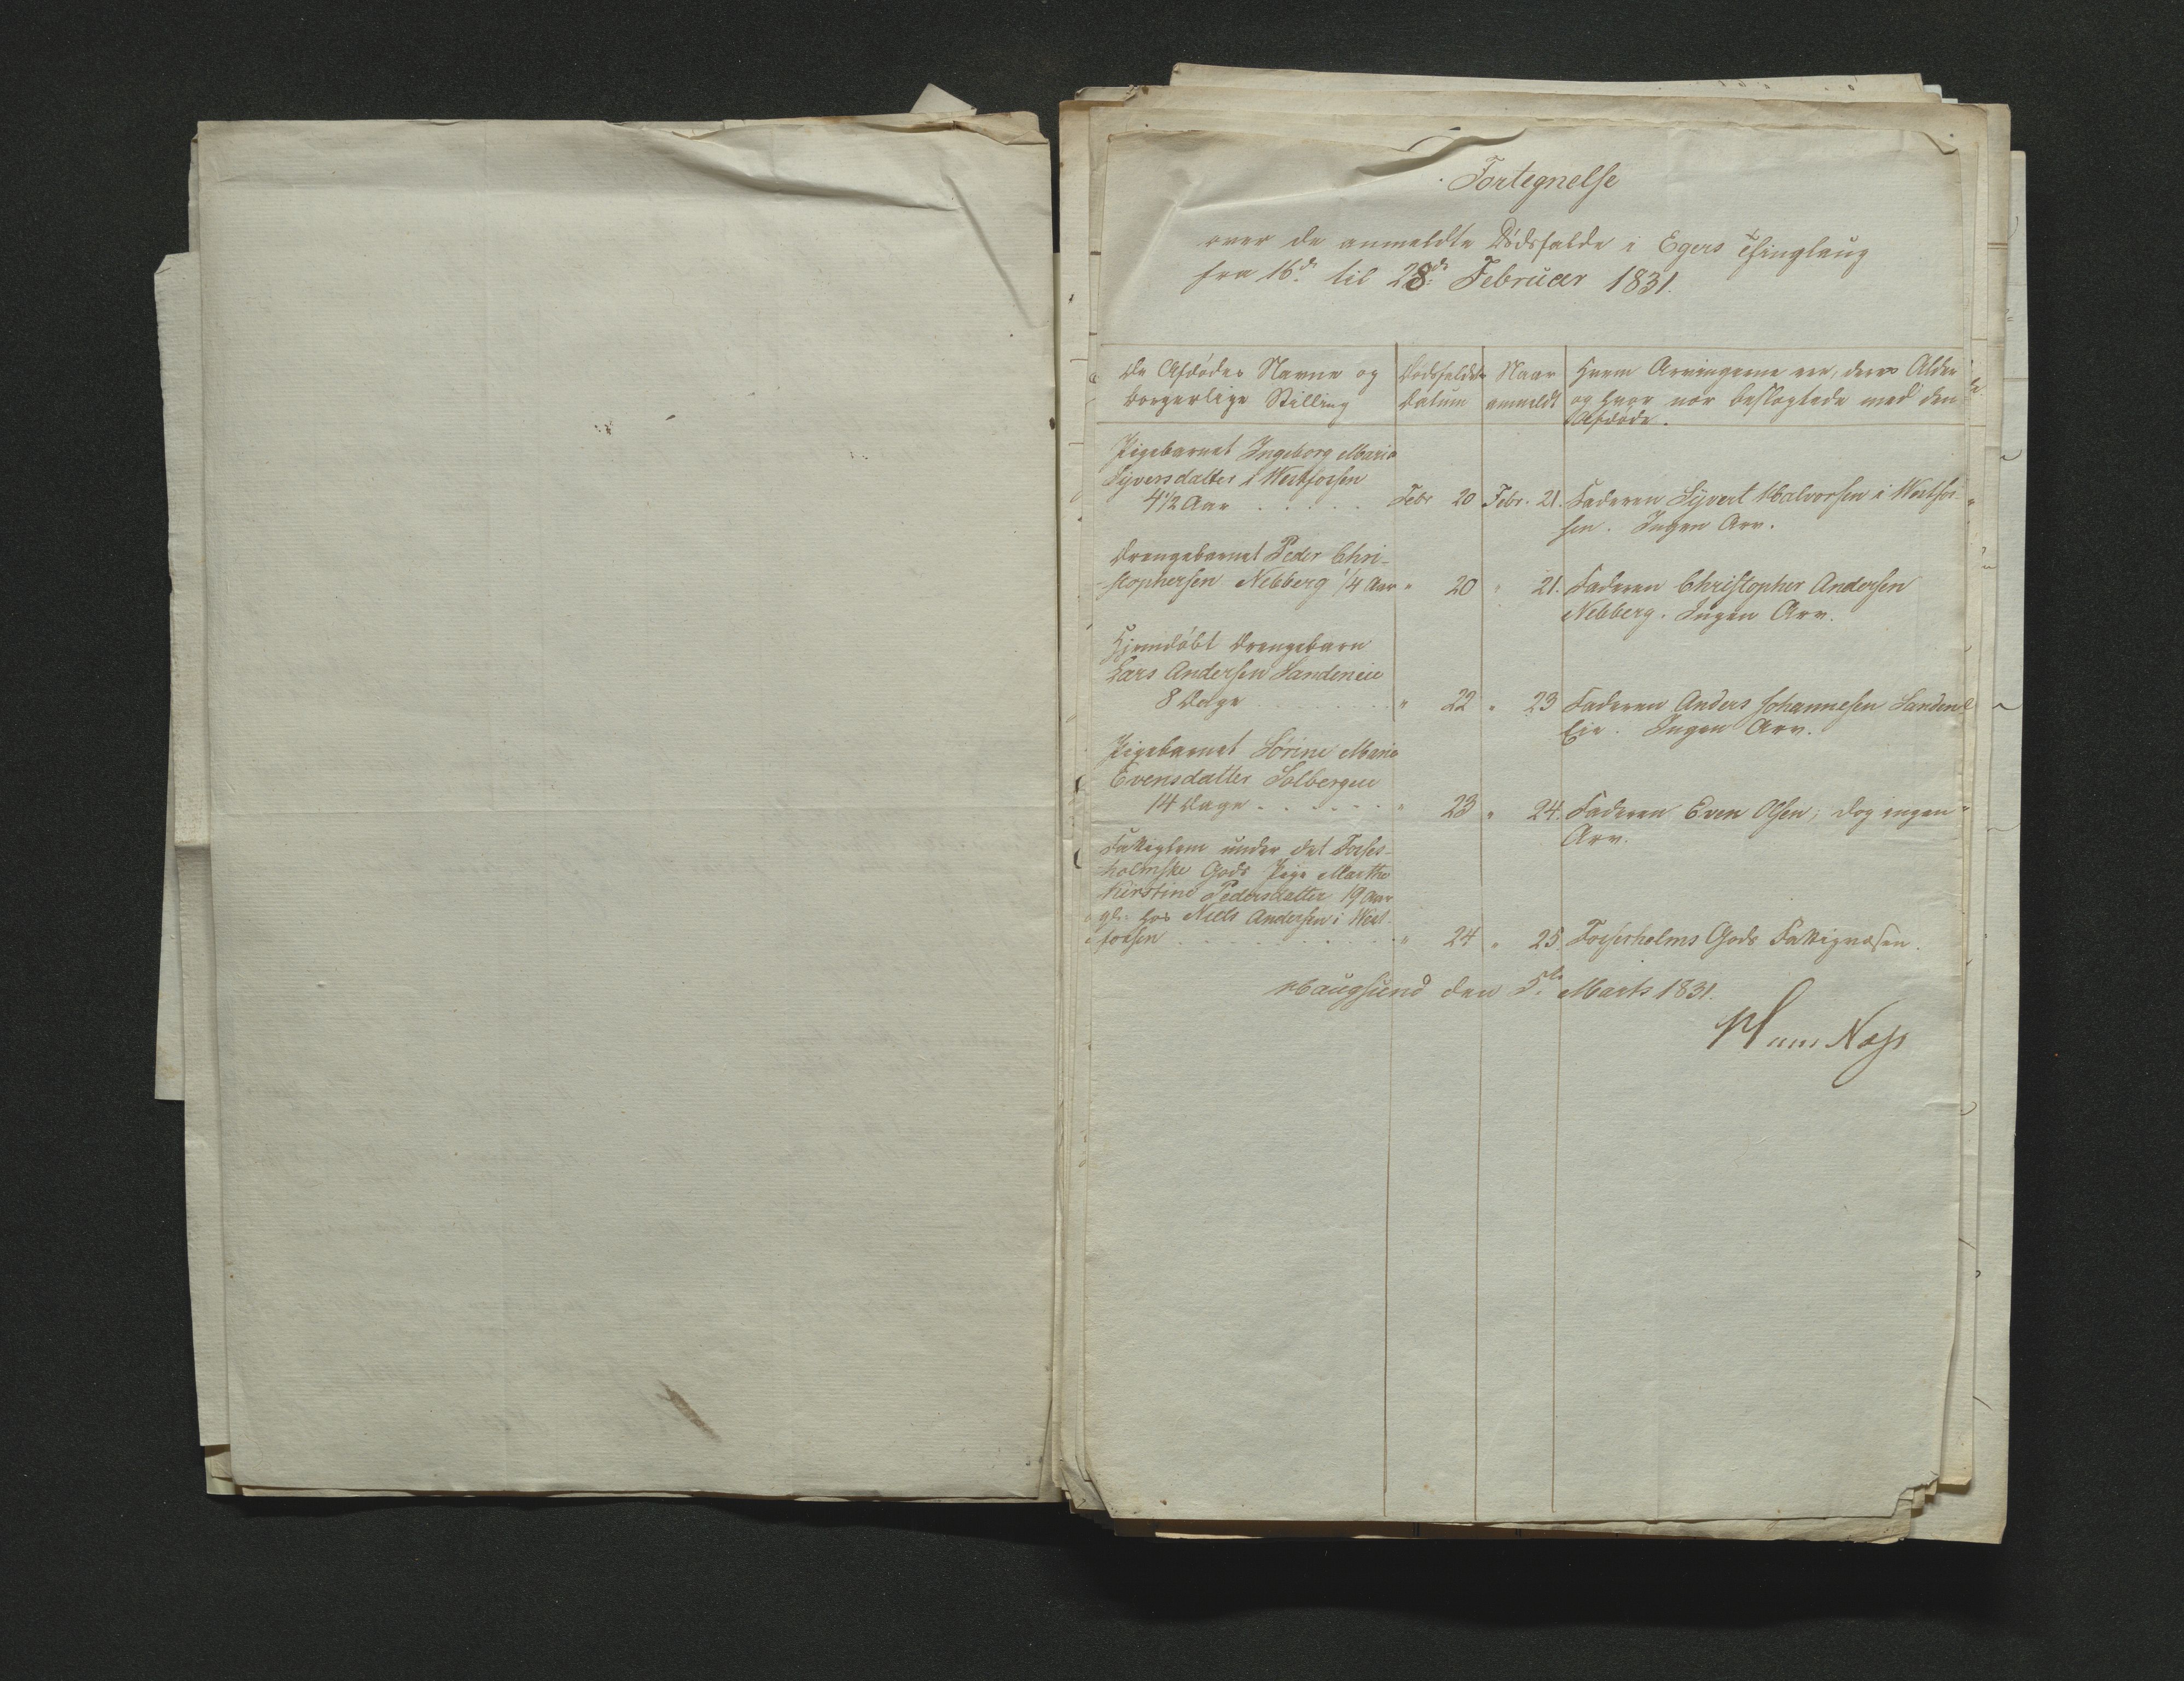 Fortegnelse
over de anmeldte Dödsfalde i Egers Thinglaug
fra 16de til 28de Februar 1831.
De Afdødes Navne og
borgerlige Stilling
Dødsfaldets
Datum
Naar
anmeldt
Hvem Arvingerne ere, deres Alder
og hvor nær beslægtede med den
Afdøde.
Pigebarnet Ingeborg Maria
Syversdatter i Westfossen
4 1/2 Aar . . . . . Febr 20 Febr. 21. Faderen Syvert Halvorsen i Westfos-
sen. Ingen Arv.
Drengebarnet Peder Chri-
stophersen Nebberg 1/4 Aar " 20 " 21. Faderen Christopher Andersen
Nebberg. Ingen Arv.
Hjemdøbt Drengebarn
Lars Andersen Sandeneie
8 Dage . . . . . " 22 " 23 Faderen Anders Johannesen Sanden
Eie. Ingen Arv.
Pigebarnet Sörine Maria
Evensdatter Solbergeie
14 Dage . . . . . . " 23 " 24. Faderen Even Olsen; dog ingen
Arv.
Fattiglem under det Fosses-
holmske Gods Pige Marthe
Kirstine Pedersdatter 19 Aar
hos Niels Andersen i West-
fossen . . . . . . " 24 " 25. Fossesholms Gods Fattigvæsen.
Haugsund den 5te Marts 1831.